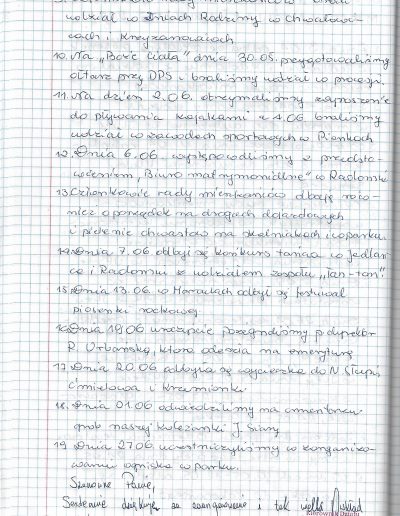 udział w Dniach Rodziny w Chwałowi-
cach i Krzyżanowicach
10. Na „Boże Ciało" dnia 30.05. przygotowaliśmy
ołtarz przy DPS i braliśmy udział w procesji.
11. Na dzień 2.06. otrzymaliśmy zaproszenie
do pływania kajakami a 4.06. braliśmy
udział w zawodach sportowych w Pionkach
12. Dnia 6.06. występowaliśmy z przedsta-
wieniem „Biuro matrymonialne" w Radomiu
13. Członkowie rady mieszkańców dbają rów-
nież o porządek na drogach dojazdowych
i pielenie chwastów na skalniakach i w parku.
14. Dnia 7.06 odbył się konkurs tańca w Jedlan-
ce i Radomiu z udziałem zespołu „Tan-tan".
15. Dnia 13.06. w odbył się festiwal
piosenki rockowej
16. Dnia 19.06 uroczyście pożegnaliśmy p. dyrektor
R. Urbańską, która odeszła na emeryturę
17. Dnia 20.06 odbyła się wycieczka do N. Słupi,
Ćmielowa i Krzemionki.
18. Dnia 01.06 odwiedziliśmy na cmentarzu
grób naszej koleżanki J. Siwy
19. Dnia 27.06 uczestniczyliśmy w zorganizo-
waniu ogniska w parku.
Szanowne Panie,
Serdecznie dziękuję za zaangażowanie i tak wielki wkład